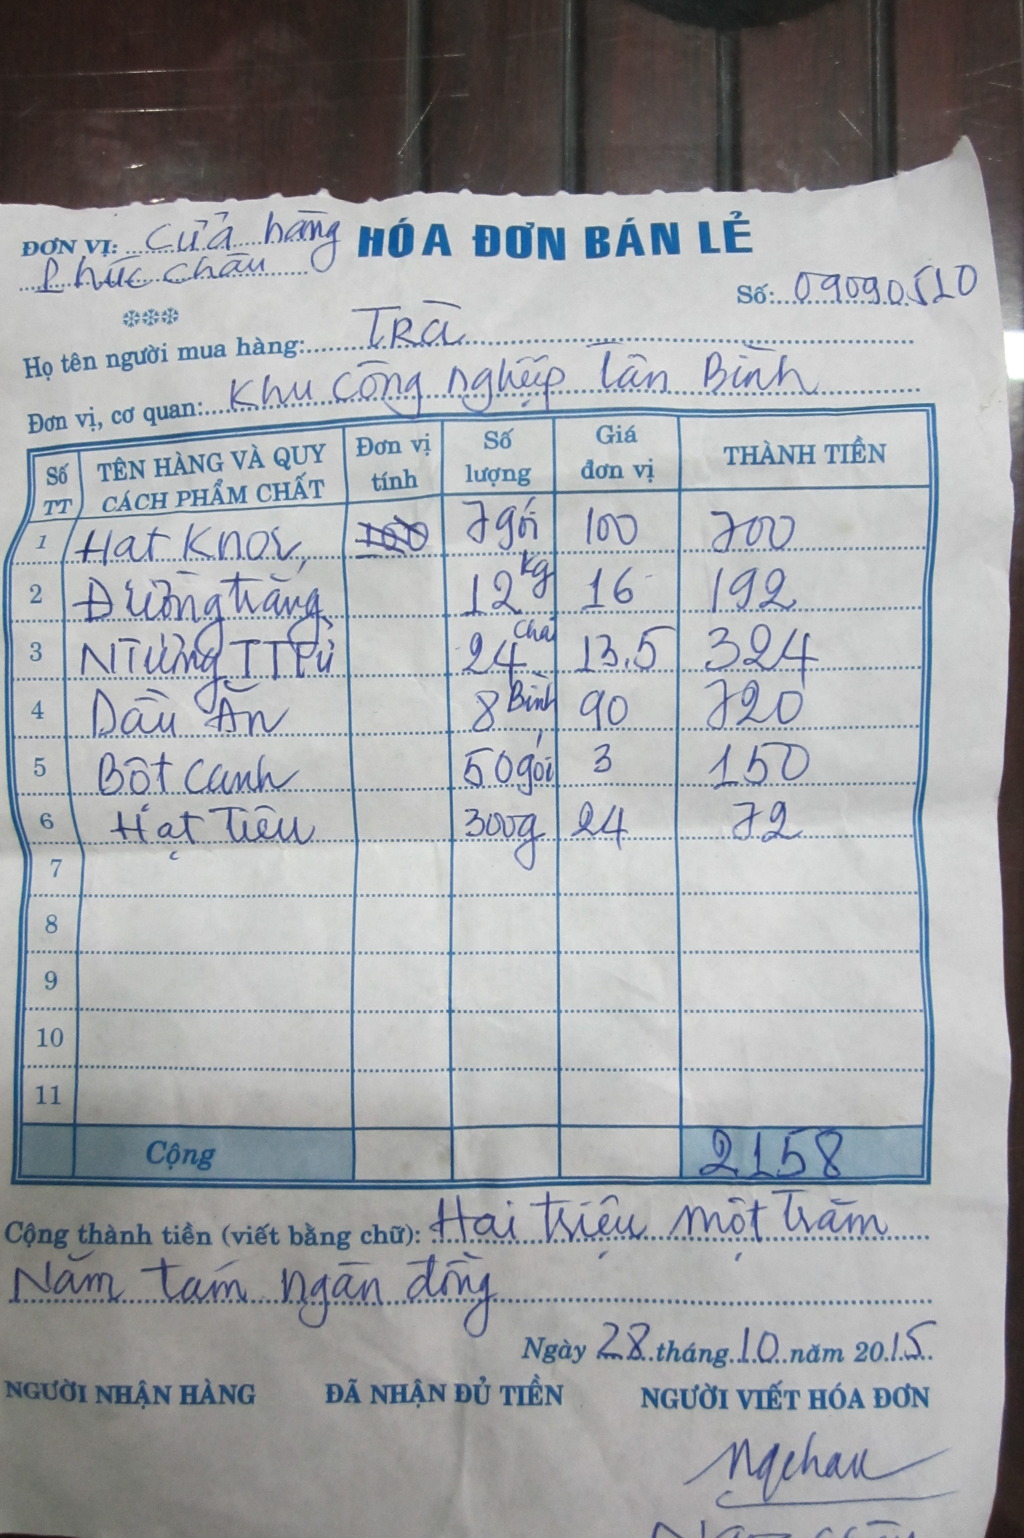 ĐƠN VỊ: Cửa hàng HÓA ĐƠN BÁN LẺ
Phúc Châu
Số: 09090510
Họ tên người mua hàng: Trà
Đơn vị, cơ quan: Khu Công nghiệp Tân Bình
Số TT TÊN HÀNG VÀ QUY CÁCH PHẨM CHẤT Đơn vị tính Số lượng Giá đơn vị THÀNH TIỀN
1 Hạt Knor 100 7 gói 100 700
2 Đường trắng 12 kg 16 192
3 24 Chai 13,5 324
4 Dầu Ăn 8 Bình 90 720
5 Bột canh 50 gói 3 150
6 Hạt Tiêu 300g 24 72
7
8
9
10
11
Cộng 2158
Cộng thành tiền (viết bằng chữ): Hai triệu một trăm
Năm tám ngàn đồng
Ngày 28 tháng 10 năm 2015
NGƯỜI NHẬN HÀNG ĐÃ NHẬN ĐỦ TIỀN NGƯỜI VIẾT HÓA ĐƠN